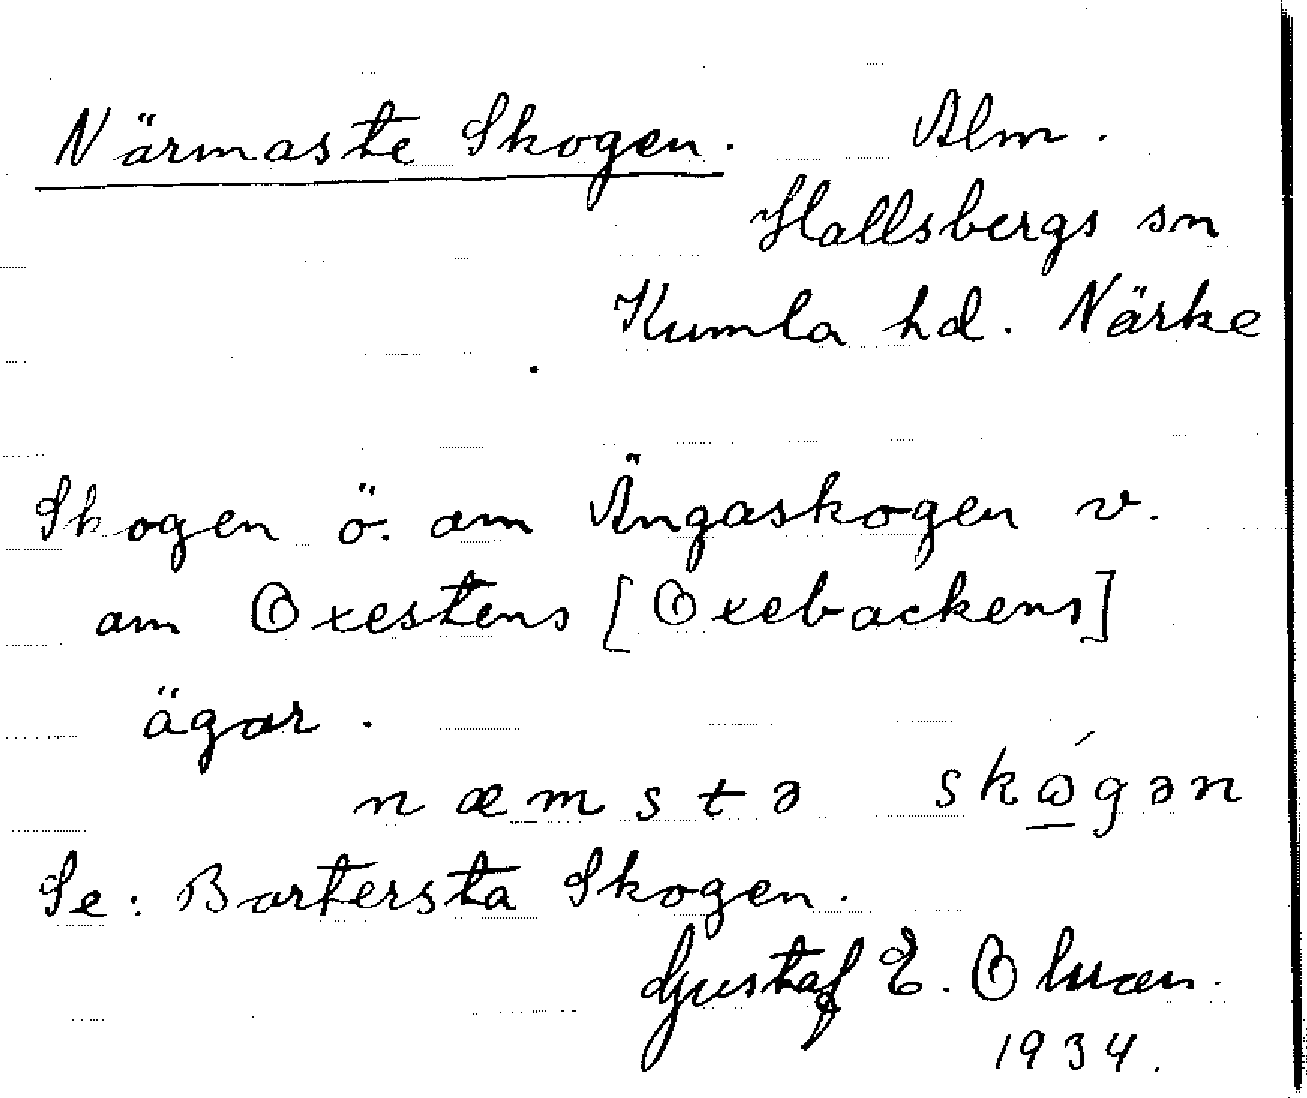 Närmaste Skogen. Alm.
Hallsbergs sn
Kumla hd. Närke
Skogen ö. om Ängaskogen v.
om Oxestens [Oxebackens]
ägor.
næmstə skógən
Se: Bortersta Skogen.
Gustaf E. Olson.
1934.